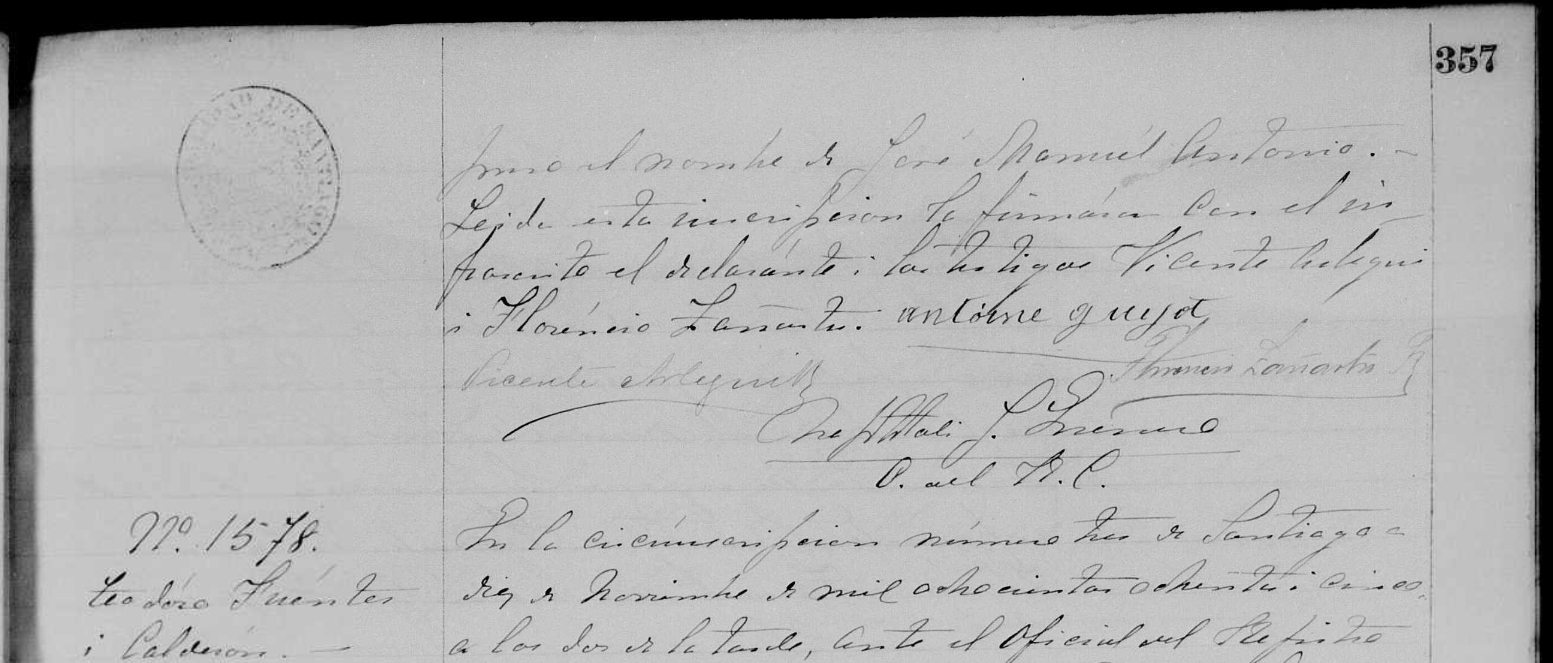 357
puso el nombre de José Manuel Antonio. -
Leida esta inscripcion la firmáron con el in-
frascrito el declarante i los testigos Vicente Arlegui
i Florencio Zañartu. antoine guyot
Vicente Arlegui R Florencio Zañartu R
Nephtali J.
O. del R. C.
Nº. 1578.
Teodoro Fuéntes
i Calderón. -
En la circunscripcion número tres de Santiago a
diez de Noviembre de mil ochocientos ochenta i cinco,
a las dos de la tarde, ante el Oficial del Rejistro
DE SANTIAGO